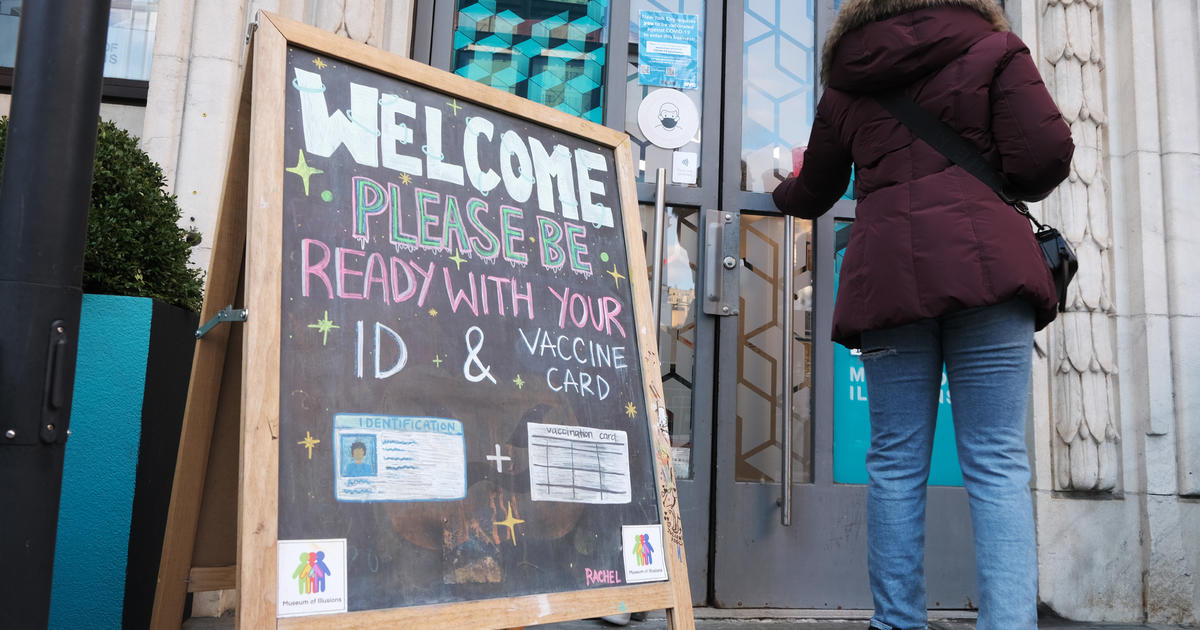 WELCOME
PLEASE BE
READY WITH YOUR
ID & VACCINE
CARD
IDENTIFICATION
+
vaccination card
RACHEL
Museum of Illusions
Museum of Illusions
New York City requires
you to be vaccinated
against COVID-19
to enter this business